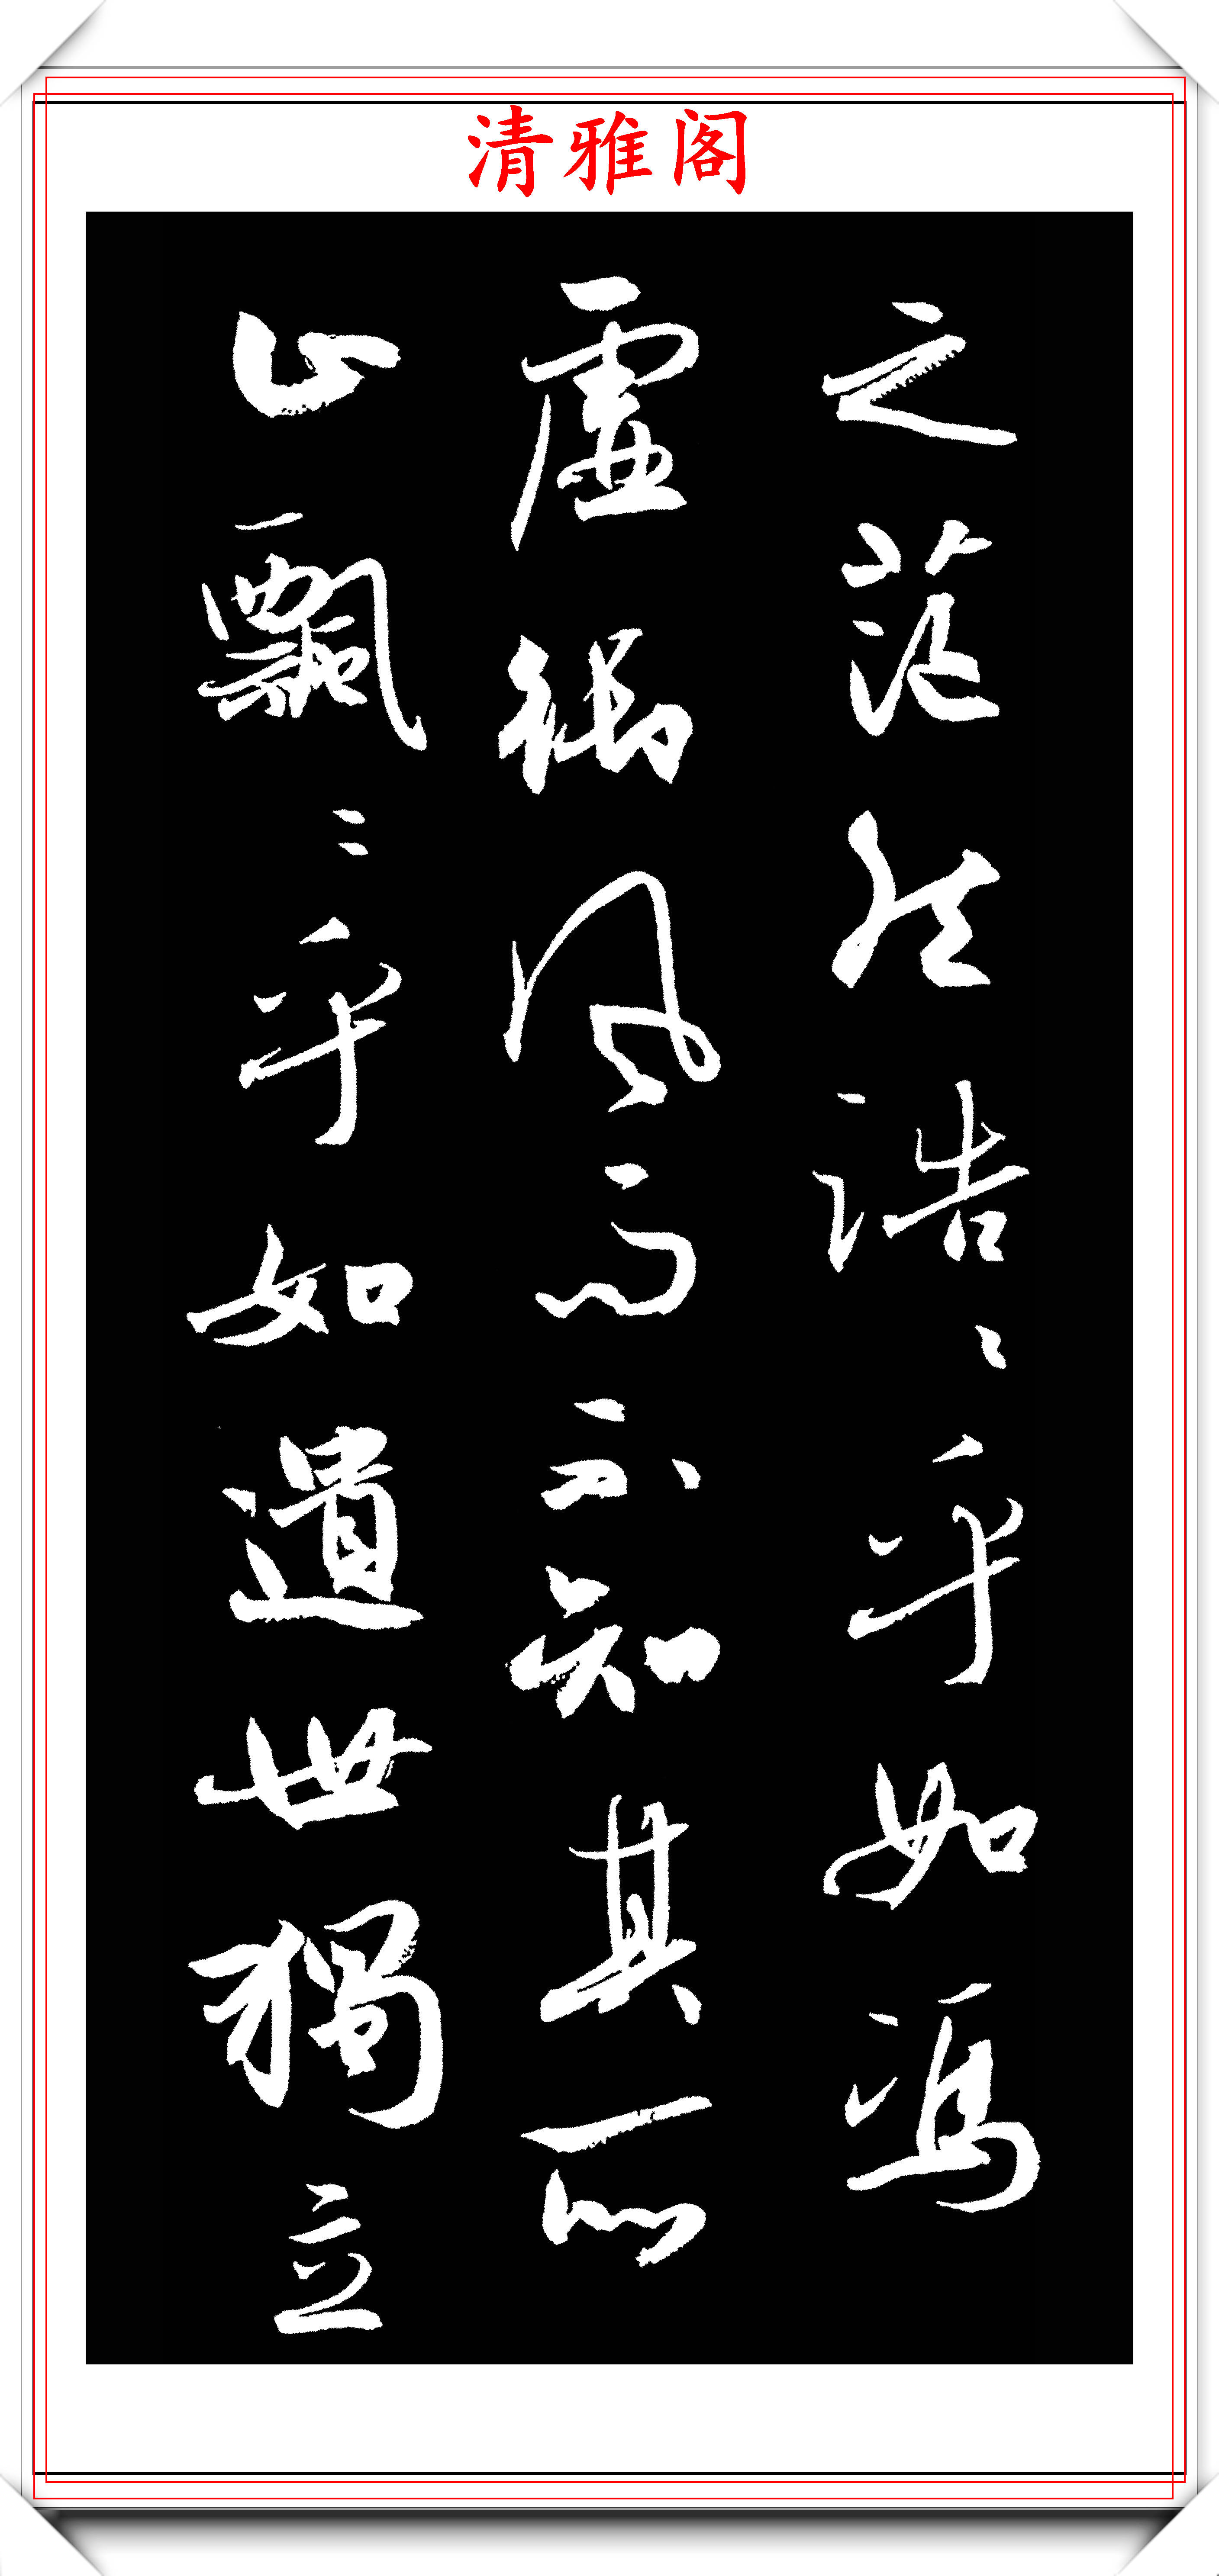 清雅阁
之茫然浩〻乎如馮
虛御風而不知其所
止飄〻乎如遺世獨立